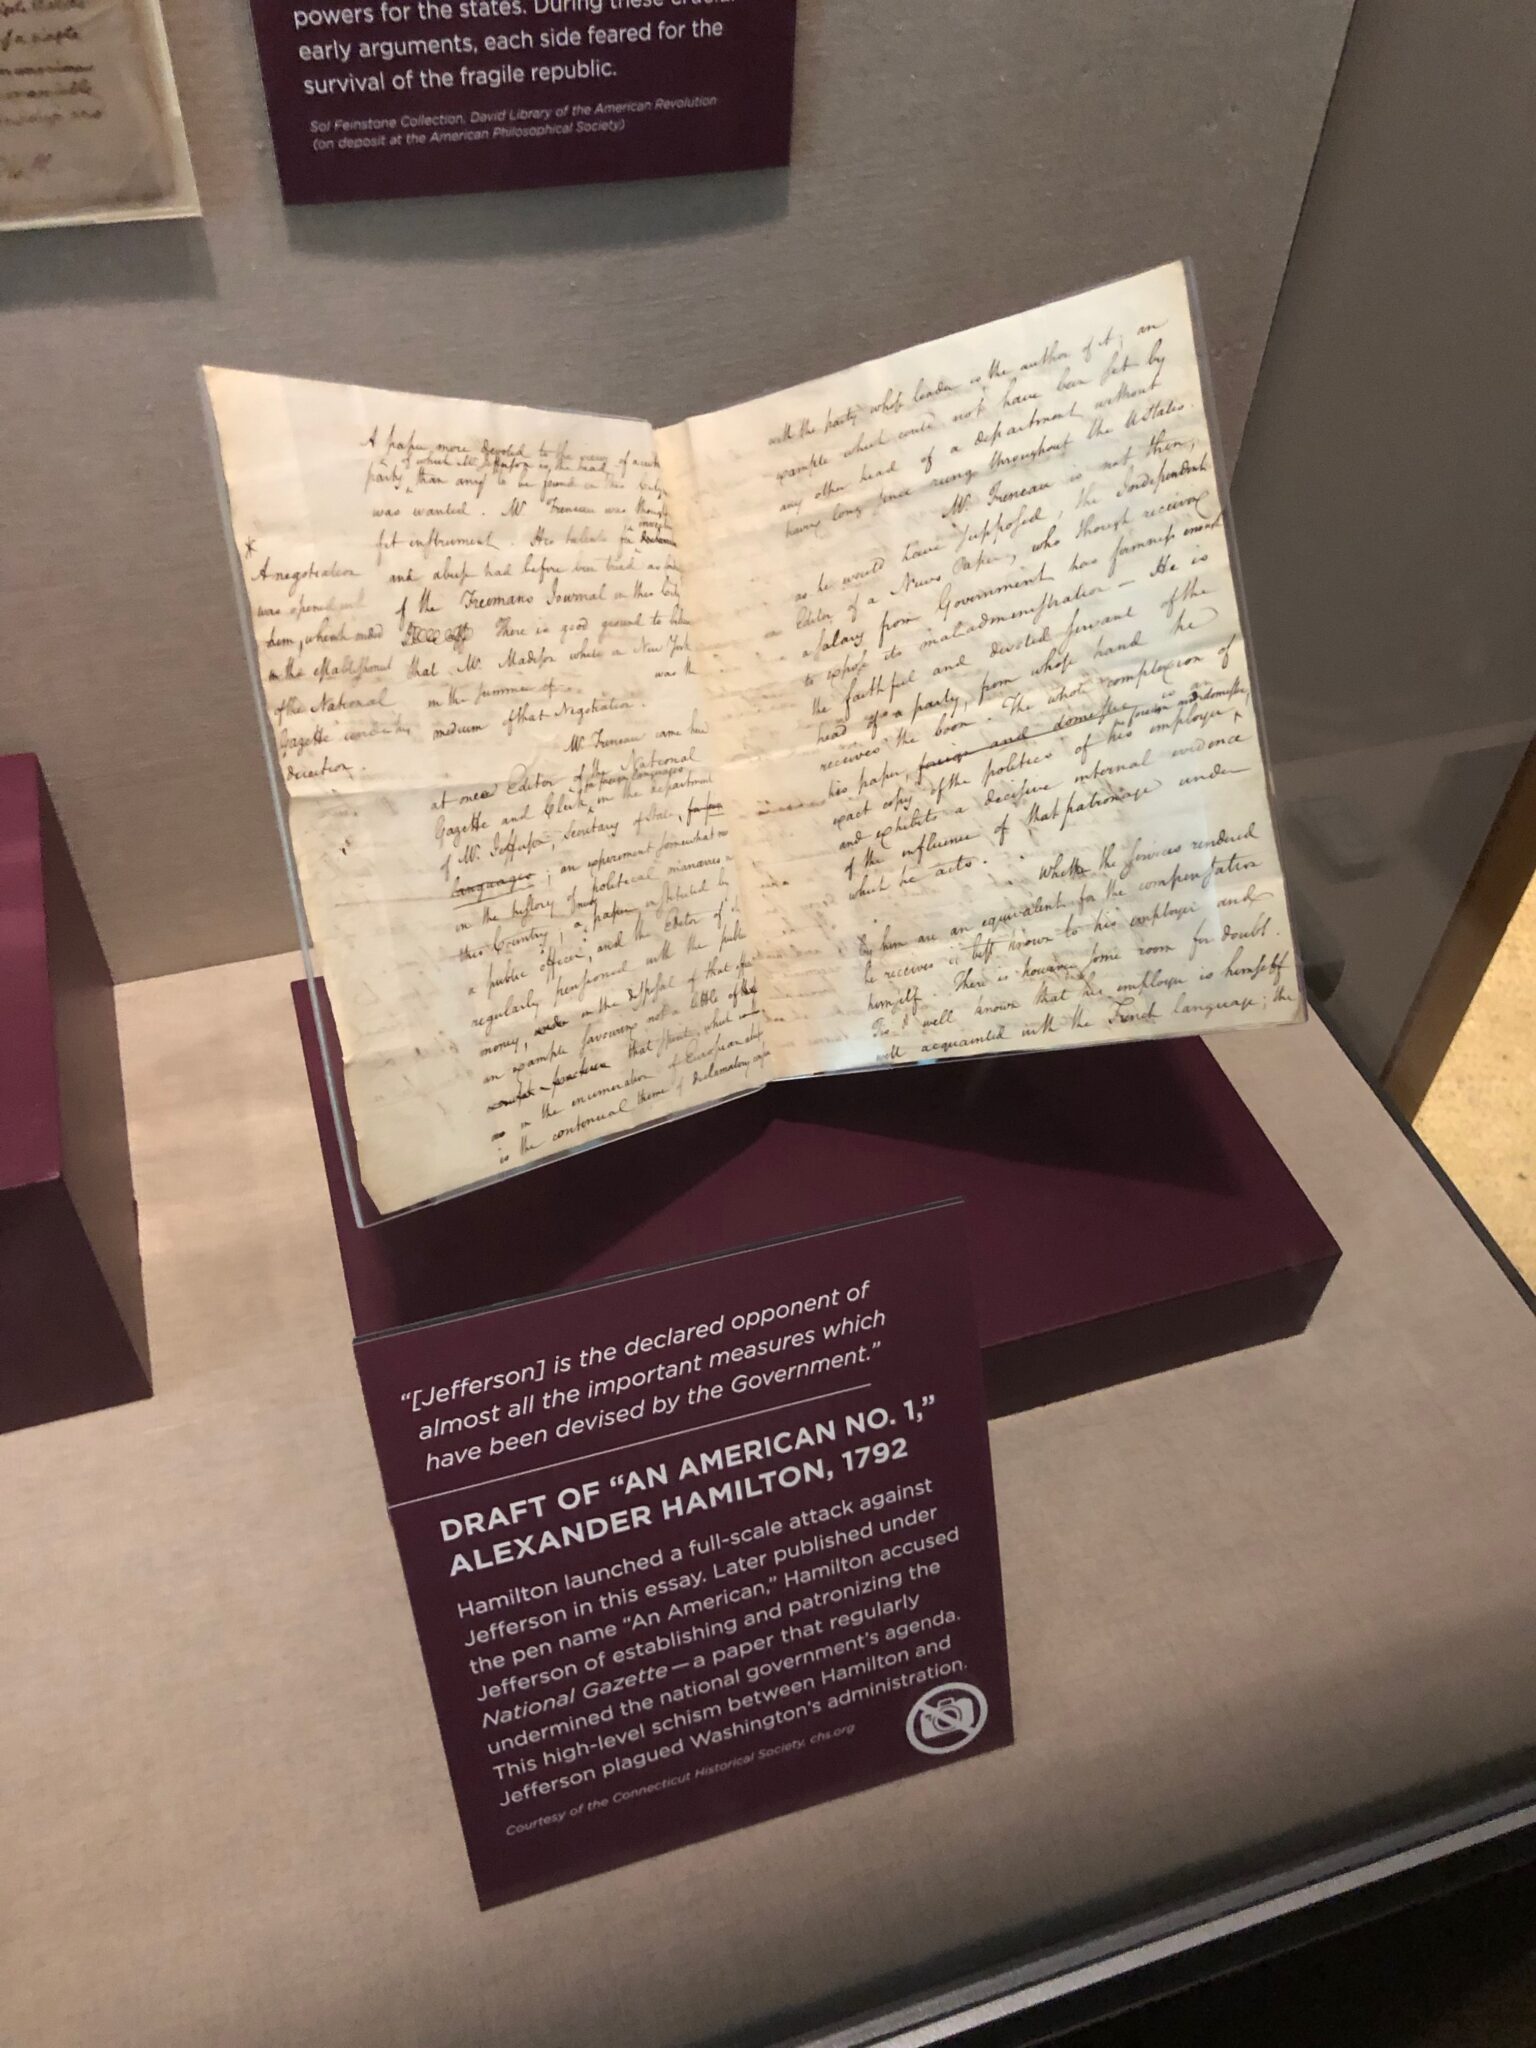 powers for the states. During these
early arguments, each side feared for the
survival of the fragile republic.
Sol Feinstone Collection, David Library of the American Revolution
(on deposit at the American Philosophical Society)
A paper more devoted to the views of a certain
of which Mr Jefferson is the head
party than any to be found in this City
was wanted. Mr Freneau was thought
fit instrument. His talents for
and abuse had before been tried as
of the Freemans Journal in this City
There is good ground to
that Mr. Madison while a New York
in the summer of was the
medium of that Negotiation.
*
A negotiation
was opened with
him, which ended
in the establishment
of the National
Gazette under his
direction.
Mr Freneau came here
at once Editor of the National
for foreign languages
Gazette and Clerk in the department
of Mr. Jefferson, Secretary of State,
languages; an experiment somewhat
in the history of political manœuvres in
this Country; a news paper instituted by
a public officer, and the Editor of it
regularly pensioned with the public
money, in the disposal of that
an example savouring not a little of
that spirit, which
as in the enumeration of European
is the continual theme of declamatory
with the party whose leader is the author of it; an
example which could not have been set by
any other head of a department without
having long since rung throughout the UStates.
Mr. Freneau is not then,
as he would have supposed, the Independent
Editor of a News Paper, who though receiving
a salary from Government has firmness enough
to expose its maladministration — He is
the faithful and devoted servant of the
head of a party, from whose hand he
receives the boon. The whole complexion of
his paper, foreign and domestic is an
foreign and domestic,
exact copy of the politics of his employer
and exhibits a decisive internal evidence
of the influence of that patronage under
which he acts.
Whether the services rendered
by him are an equivalent for the compensation
he receives is best known to his employer and
himself. There is however some room for doubt.
Tis well known that his employer is himself
well acquainted with the French language; the
“[Jefferson] is the declared opponent of
almost all the important measures which
have been devised by the Government.”
DRAFT OF “AN AMERICAN NO. 1,”
ALEXANDER HAMILTON, 1792
Hamilton launched a full-scale attack against
Jefferson in this essay. Later published under
the pen name “An American,” Hamilton accused
Jefferson of establishing and patronizing the
National Gazette—a paper that regularly
undermined the national government’s agenda.
This high-level schism between Hamilton and
Jefferson plagued Washington’s administration.
Courtesy of the Connecticut Historical Society, chs.org